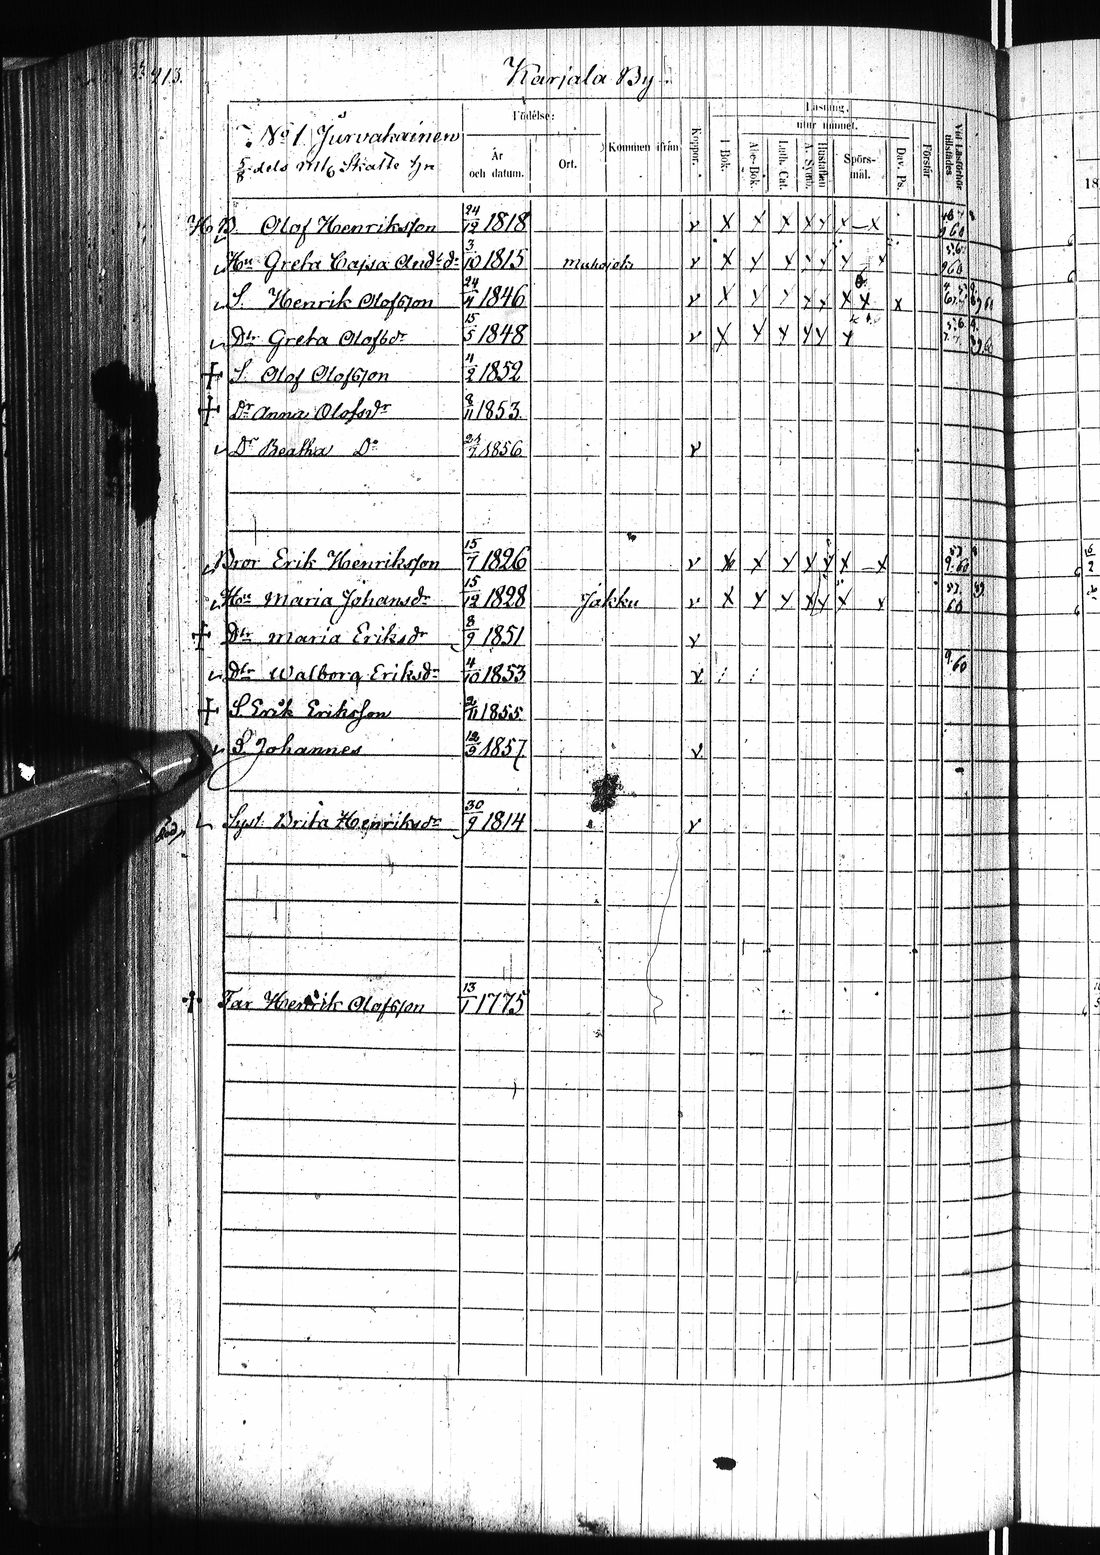 213.
Karjala By.
No 1. Jurvakainen
5/8 dels mtl Skatte hn
Födelse:
År och datum.
Ort.
Kommen ifrån
Koppor.
Läsning,
utur minnet.
I Bok.
Abc-Bok.
Luth. Cat.
Hustaflan A. Symb.
Spörsmål.
Dav. Ps.
Förstår
Vid Läsförhör tillstädes
B. Olof Henriksson 24/12 1818 v x x x x x x x
Hu Greta Cajsa Andrsdr 3/10 1815 Muhojoki v x
S. Henrik Olofsson 24/4 1846 v x
Dtr Greta Olofsdr 15/5 1848 v x
+ S. Olof Olofsson 4/2 1852
+ Dr Anna Olofsdr 8/11 1853.
Dr Beatha Do 1856 v
Bror Erik Henriksson 15/7 1826 v x x x x x x x
Hu Maria Johansdr 15/12 1828 Jakku v x
+ Dtr Maria Eriksdr 8/9 1851 v
Dtr Walborg Eriksdr 4/10 1853 v 9.60
+ S Erik Eriksson 2/11 1855
S. Johannes 12/9 1857 v
Syst. Brita Henriksdr 30/9 1814 v
+ Far Henrik Olofsson 13/1 1775
18